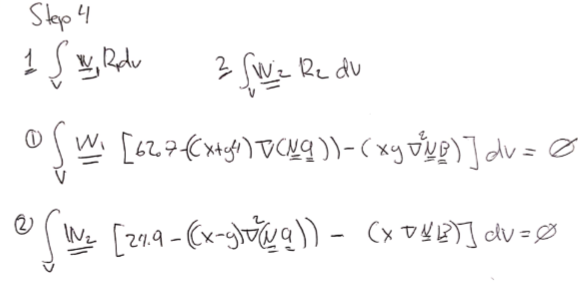 Step 4
1 ∫_V W₁ R₁ dv    2 ∫_V W₂ R₂ dv
① ∫_V W₁ [62.7-((x+y⁴) ∇(N a)) - (xy ∇²N B)] dv = ∅
② ∫_V W₂ [27.9 - ((x-y)∇²(N a)) - (x ∇ N B)] dv = ∅